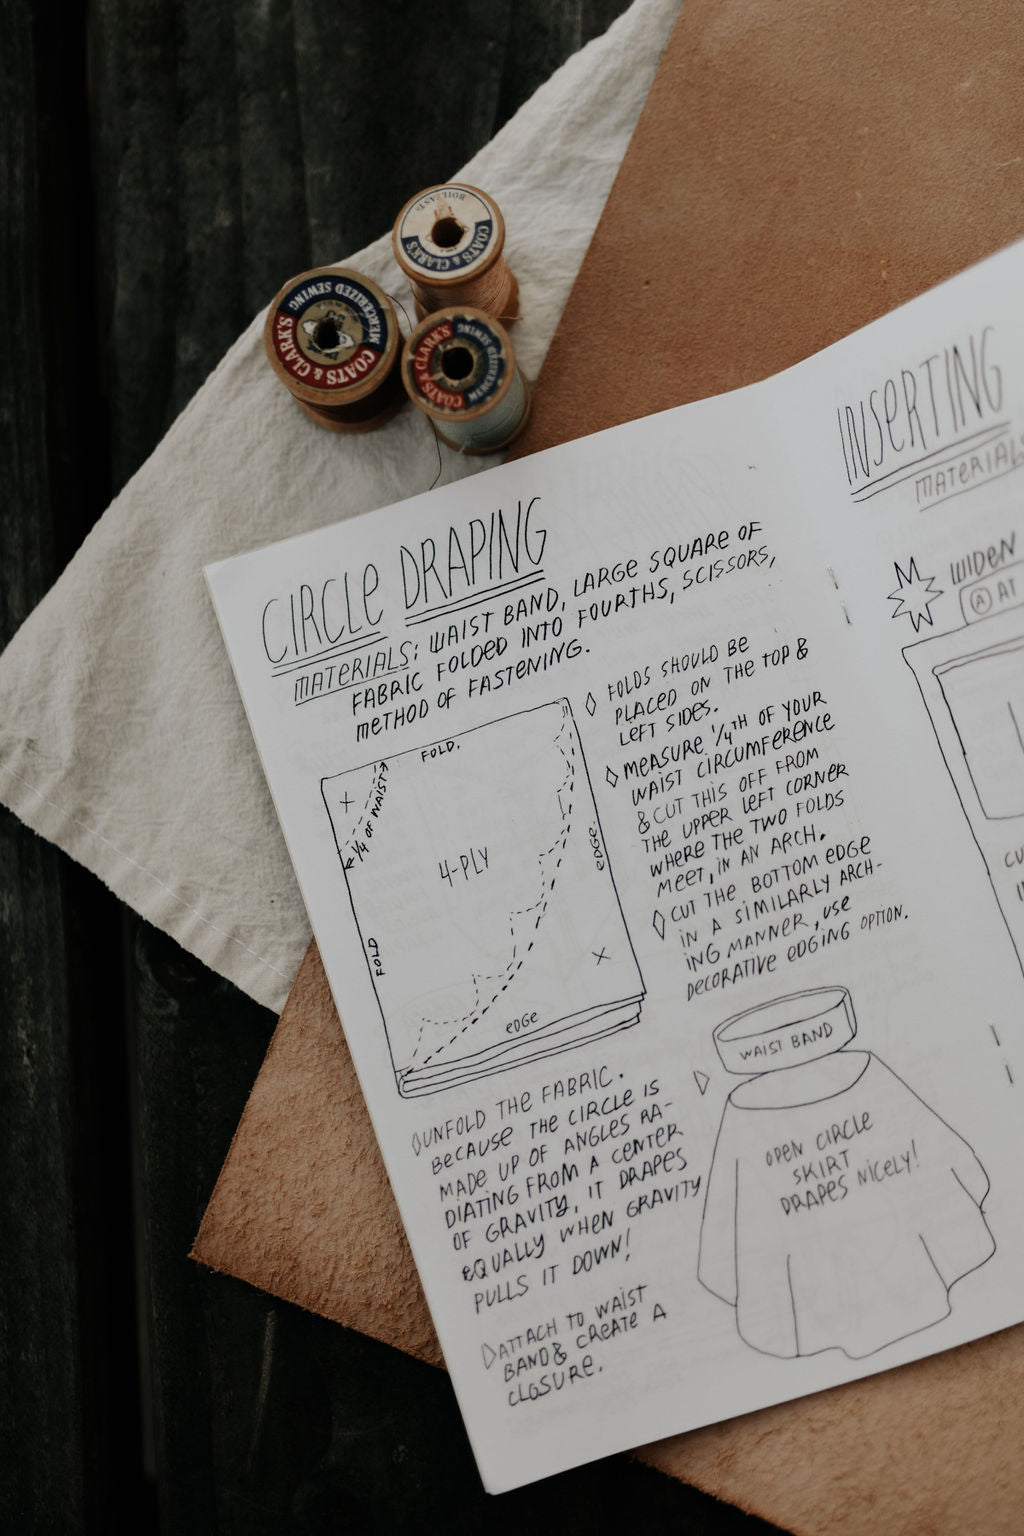 BOILFAST
COATS & CLARK'S
MERCERIZED SEWING
COATS & CLARK'S
COATS & CLARK'S
MERCERIZED SEWING
CIRCLE DRAPING
MATERIALS: WAIST BAND, LARGE SQUARE OF
FABRIC FOLDED INTO FOURTHS, SCISSORS,
METHOD OF FASTENING.
FOLD.
1/4 OF WAIST
4-PLY
EDGE.
FOLD
EDGE
FOLDS SHOULD BE
PLACED ON THE TOP &
LEFT SIDES.
MEASURE 1/4TH OF YOUR
WAIST CIRCUMFERENCE
& CUT THIS OFF FROM
THE UPPER LEFT CORNER
WHERE THE TWO FOLDS
MEET, IN AN ARCH.
CUT THE BOTTOM EDGE
IN A SIMILARLY ARCH-
ING MANNER, USE
DECORATIVE EDGING OPTION.
UNFOLD THE FABRIC.
BECAUSE THE CIRCLE IS
MADE UP OF ANGLES RA-
DIATING FROM A CENTER
OF GRAVITY, IT DRAPES
EQUALLY WHEN GRAVITY
PULLS IT DOWN!
ATTACH TO WAIST
BAND & CREATE A
CLOSURE.
WAIST BAND
OPEN CIRCLE
SKIRT
DRAPES NICELY!
INSERTING
MATERIALS
WIDEN
A AT